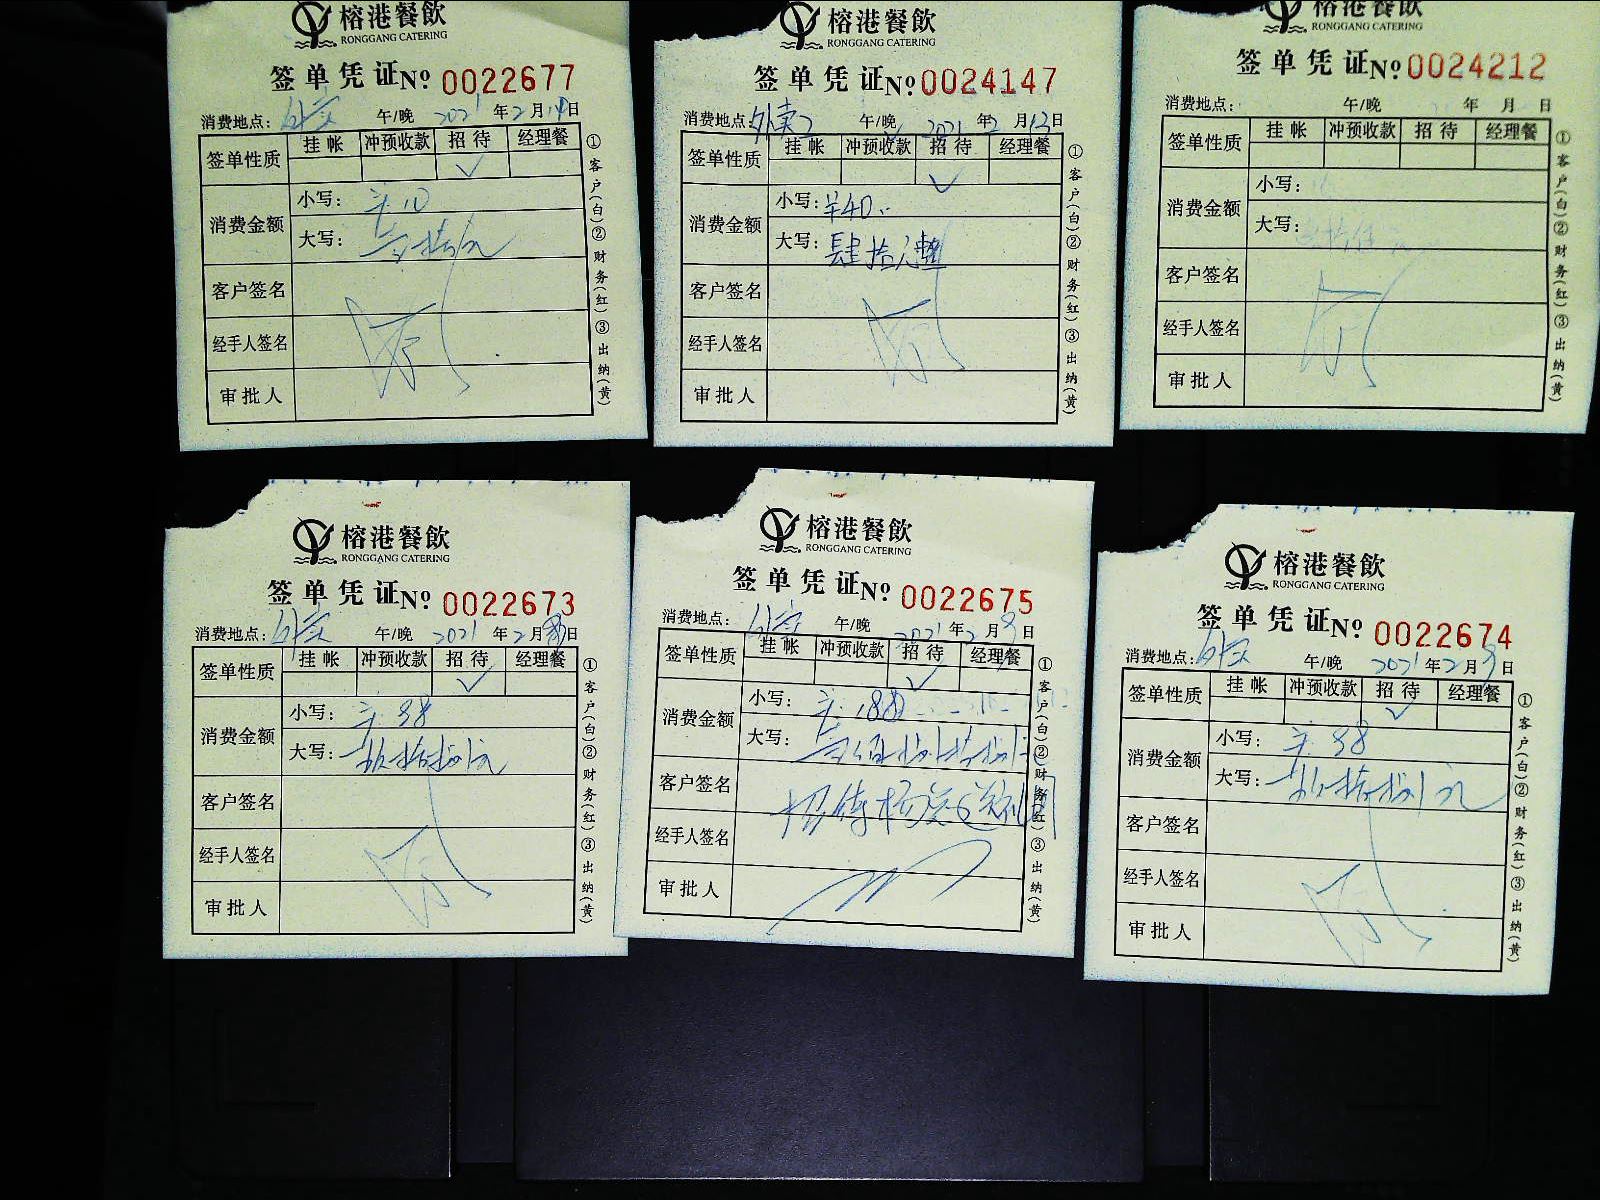 榕港餐飲
RONGGANG CATERING
签单凭证 No 0022677
消费地点: 午/晚 2021年2月14日
签单性质 挂帐 冲预收款 招待 经理餐
✓
消费金额 小写: 10
大写:
客户签名
经手人签名
审批人
①客户(白)②财务(红)③出纳(黄)
榕港餐飲
RONGGANG CATERING
签单凭证 No 0024147
消费地点: 外卖 午/晚 2021年2月13日
签单性质 挂帐 冲预收款 招待 经理餐
✓
消费金额 小写: ¥40
大写: 肆拾元整
客户签名
经手人签名
审批人
①客户(白)②财务(红)③出纳(黄)
榕港餐飲
RONGGANG CATERING
签单凭证 No 0024212
消费地点: 午/晚 年 月 日
签单性质 挂帐 冲预收款 招待 经理餐
消费金额 小写:
大写:
客户签名
经手人签名
审批人
①客户(白)②财务(红)③出纳(黄)
榕港餐飲
RONGGANG CATERING
签单凭证 No 0022673
消费地点: 午/晚 2021年2月 日
签单性质 挂帐 冲预收款 招待 经理餐
✓
消费金额 小写: 98
大写: 玖拾捌元
客户签名
经手人签名
审批人
①客户(白)②财务(红)③出纳(黄)
榕港餐飲
RONGGANG CATERING
签单凭证 No 0022675
消费地点: 午/晚 2021年2月9日
签单性质 挂帐 冲预收款 招待 经理餐
✓
消费金额 小写: 188
大写: 壹佰捌拾捌元
客户签名
经手人签名
审批人
①客户(白)②财务(红)③出纳(黄)
榕港餐飲
RONGGANG CATERING
签单凭证 No 0022674
消费地点: 午/晚 2021年2月9日
签单性质 挂帐 冲预收款 招待 经理餐
✓
消费金额 小写: 98
大写: 玖拾捌元
客户签名
经手人签名
审批人
①客户(白)②财务(红)③出纳(黄)